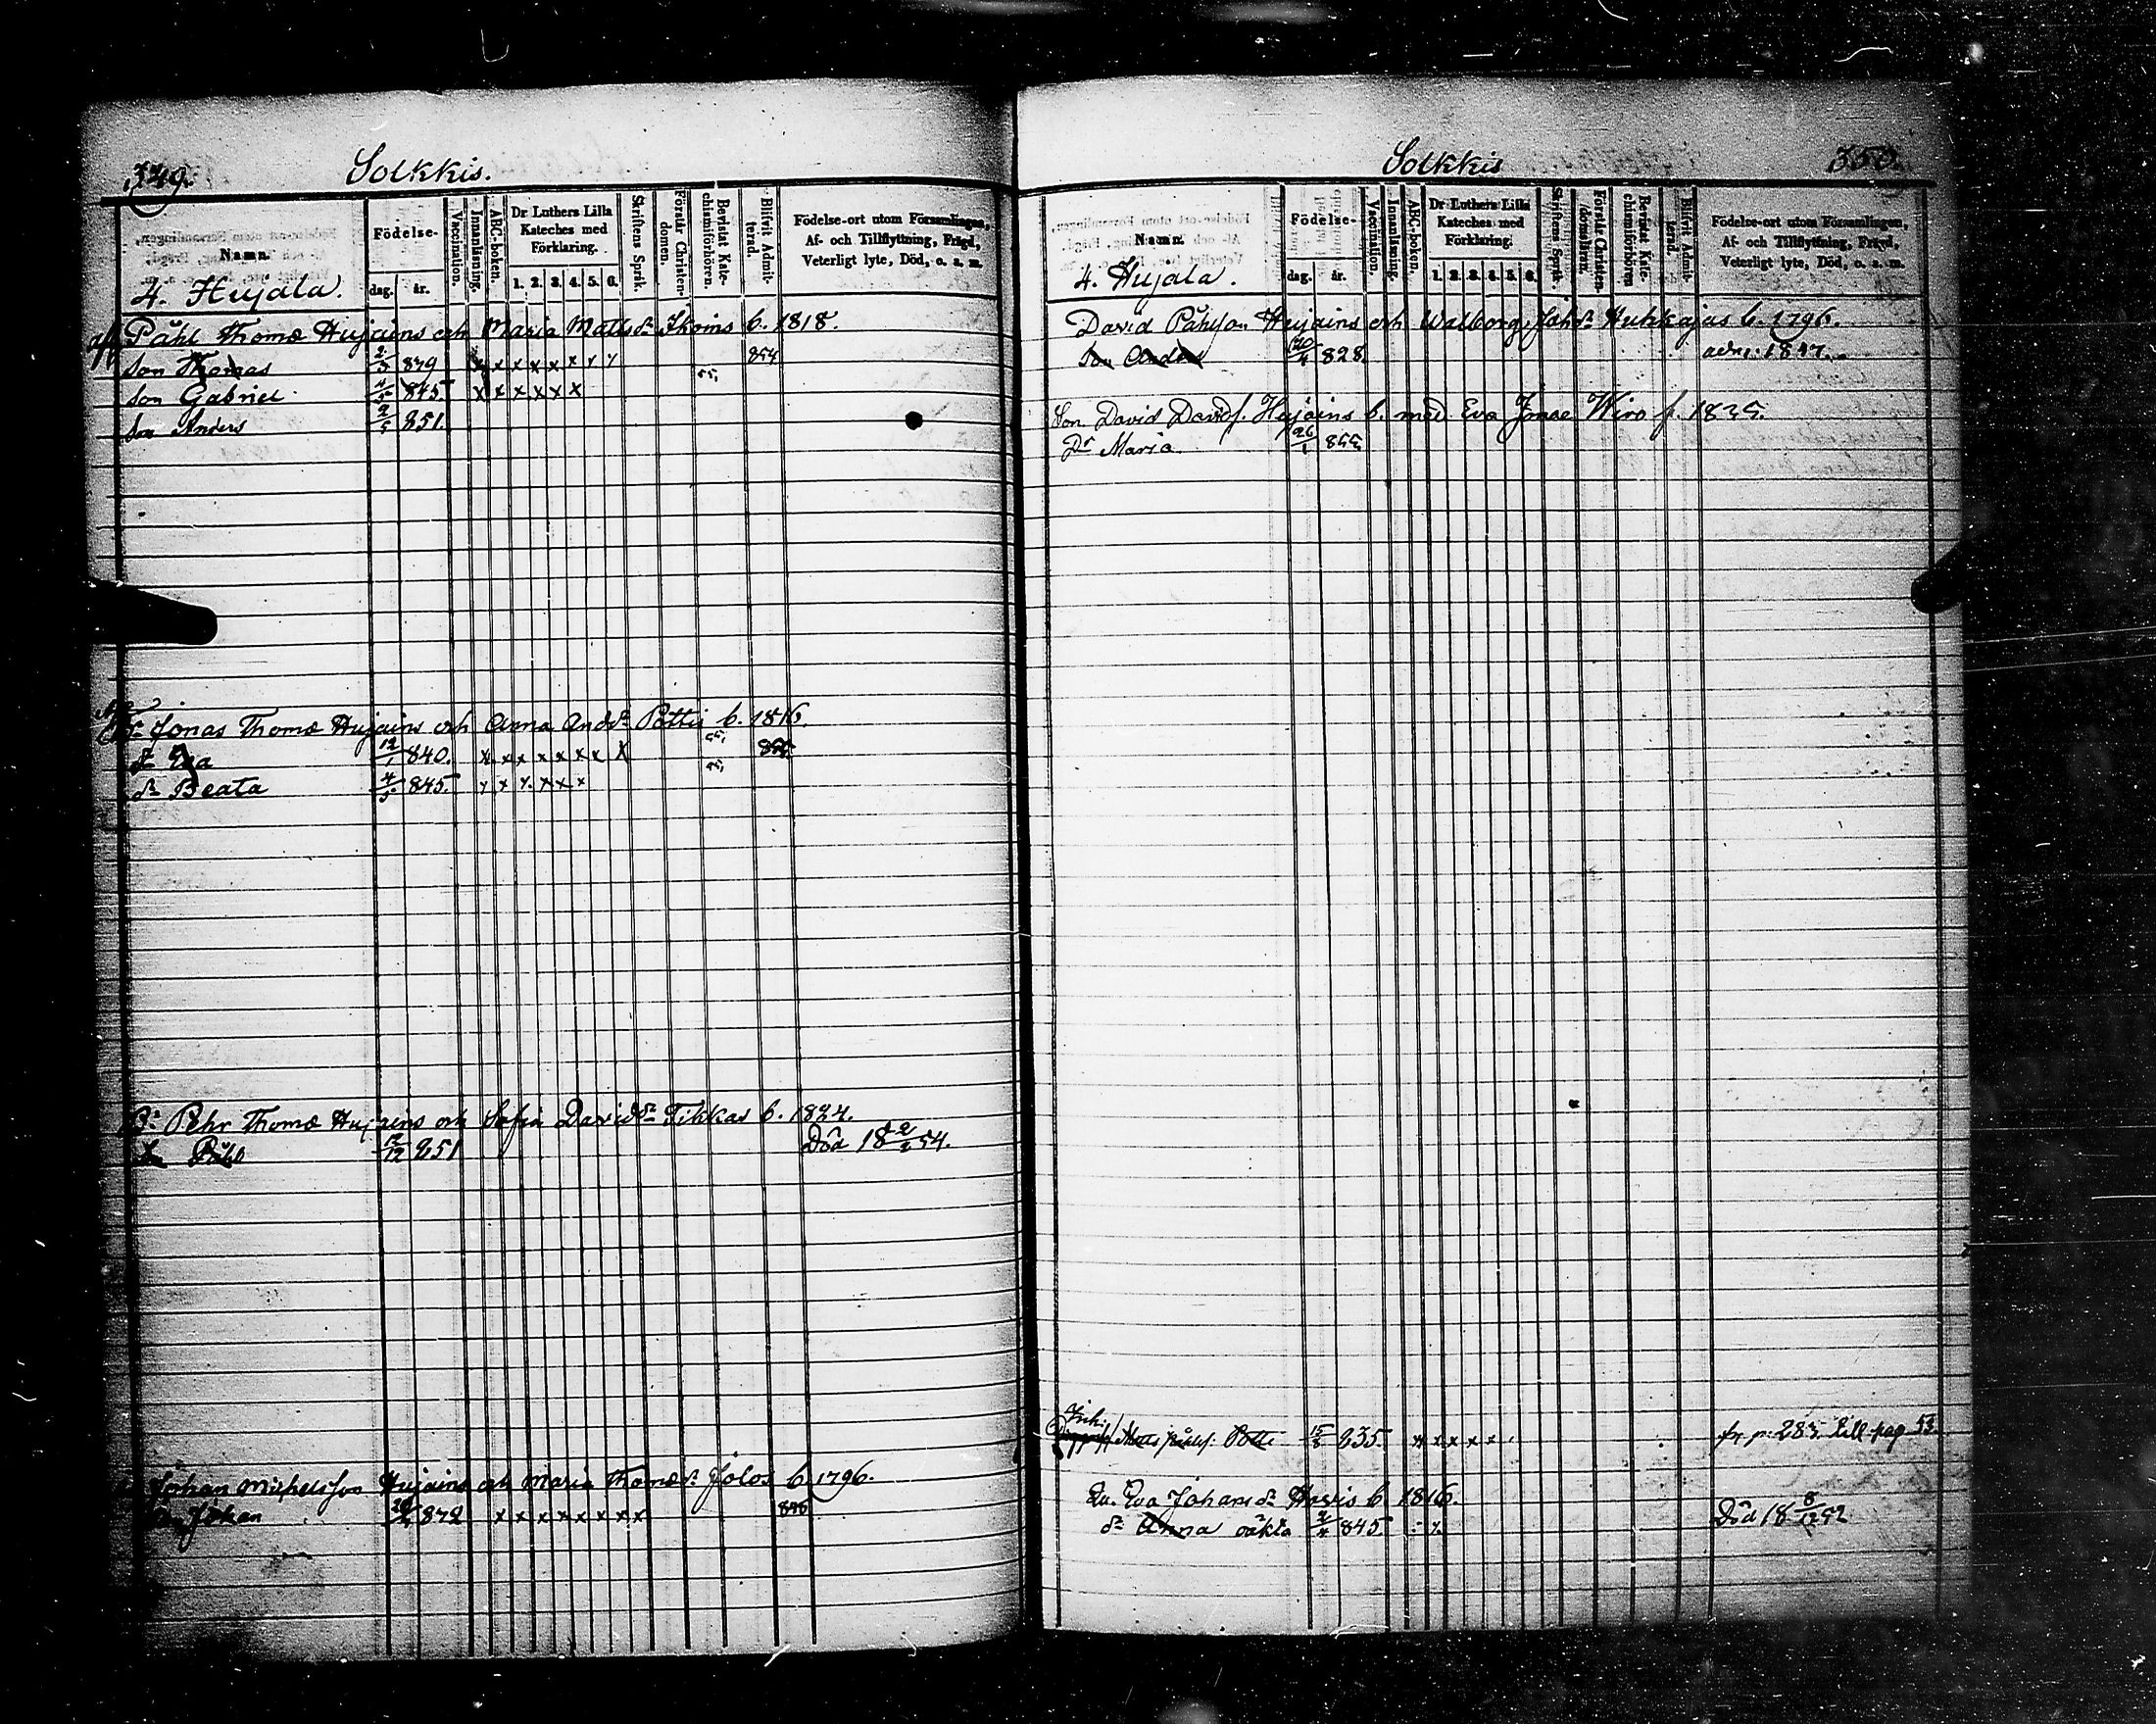 349.
Solkkis.
Namn.
Födelse-
dag. år.
Vaccination.
Innanläsning.
ABC-boken.
Dr Luthers Lilla Kateches med Förklaring.
1. 2. 3. 4. 5. 6.
Skriftens Språk.
Förstår Christendomen.
Bevistat Katechismiförhören.
Blifvit Admitterad.
Födelse-ort utom Församlingen, Af- och Tillflyttning, Frägd, Veterligt lyte, Död, o. s. m.
4. Hujala.
Påhl Thomæ Hujains och Maria Matts dr Ihoins b. 1818.
Son Thomas 2/3 839 x x x x x x x x 854
Son Gabriel 4/5 845 x x x x x x 55,
Son Anders 2/5 851
Br Jonas Thomæ Hujains och Anna And. dr Pottis b. 1816.
dr Eva 12/1 840. x x x x x x x X 55, 855
dr Beata 4/5 845. x x x x x x 55,
Br Pehr Thomæ Hujains och Sofia Davids dr Tikkas b. 1824.
Son Påhl 12/12 851 Död 18 22/2 54.
Johan Michelsson Hujains och Maria Thomæ dr Jolos b. 1796.
Johan 842 x x x x x x x x
350.
Solkkis
Namn.
Födelse-
dag. år.
Vaccination.
Innanläsning.
ABC-boken.
Dr Luthers Lilla Kateches med Förklaring.
1. 2. 3. 4. 5. 6.
Skriftens Språk.
Förstår Christendomen.
Bevistat Katechismiförhören
Blifvit Admitterad.
Födelse-ort utom Församlingen, Af- och Tillflyttning, Frägd, Veterligt lyte, Död, o. s. m.
4. Hujala.
David Påhlson Hujains och Walborg Joh dr Huhkajas b. 1796.
Son Anders 20/4 828 adm. 1847.
Son David Davids. Hujains b. med Eva Jonæ Wiro f. 1835.
Dr Maria 26/1 855
Inh. Matts Påhls. Potti 15/8 835. x x x x x fr. p. 283. till pag 53
Eva Johans dr Harvis b. 1816.
dr Anna oäkta 2/4 845 Död 18 8/12 52